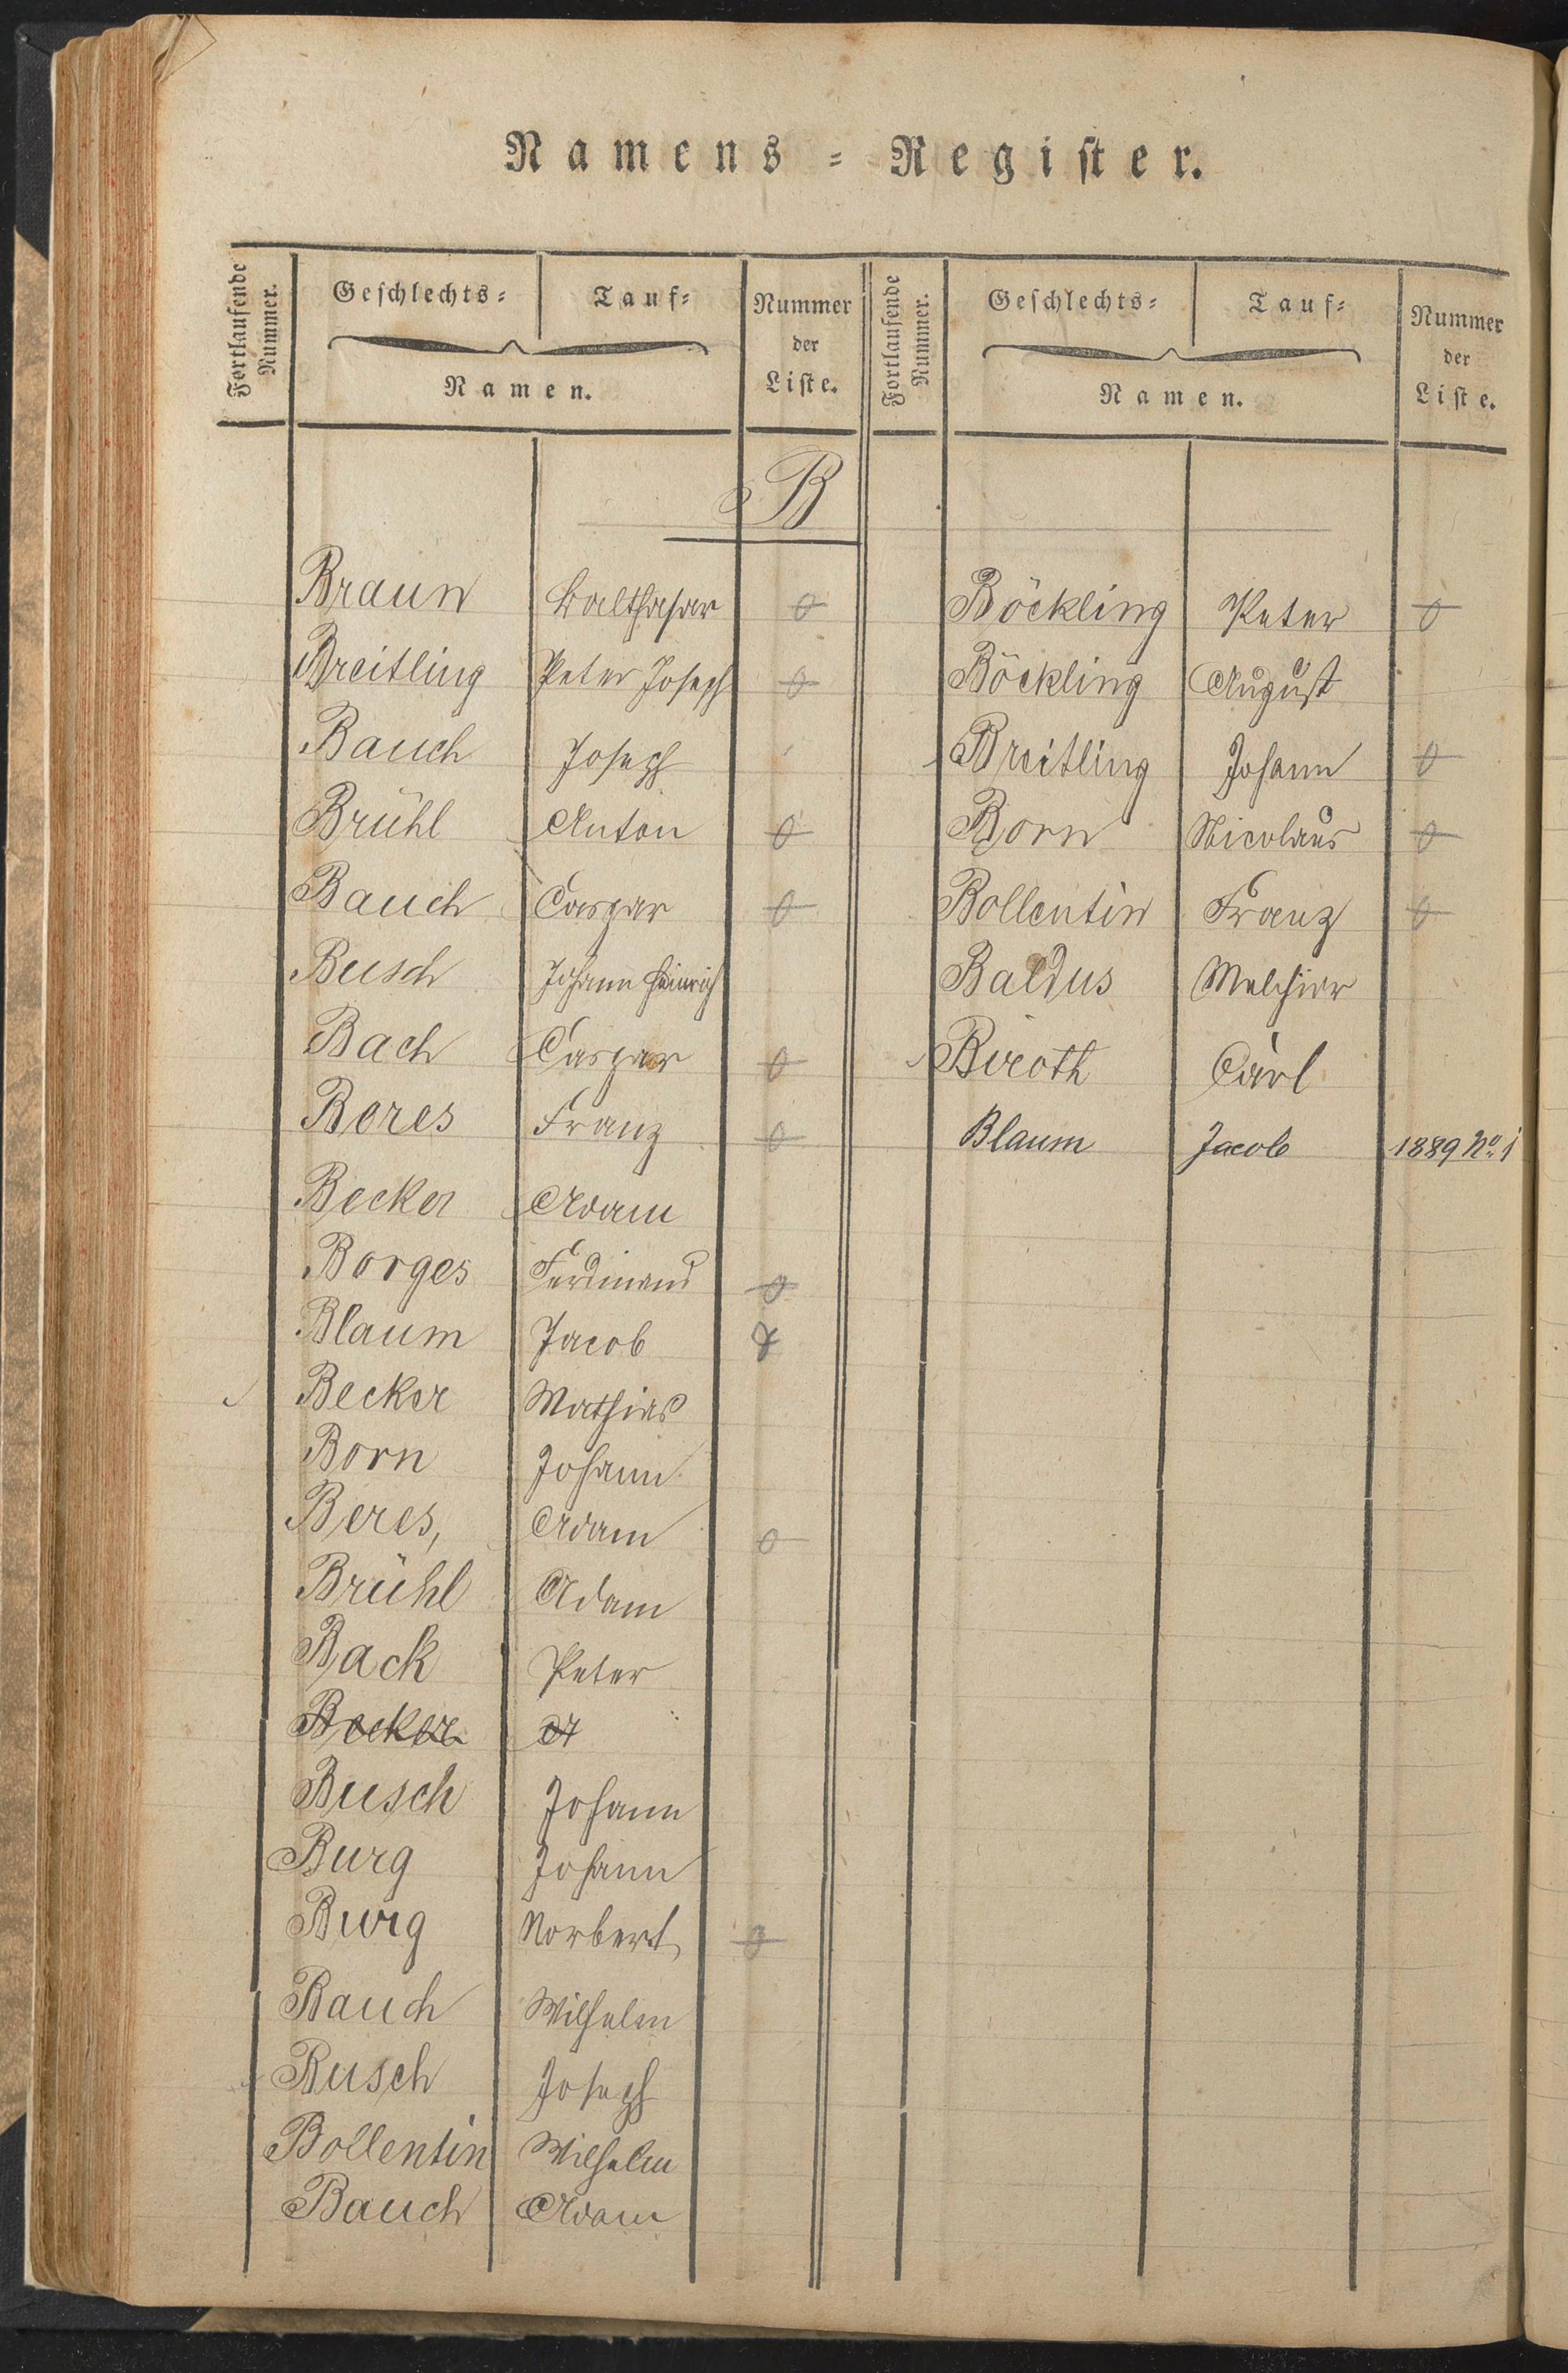 Namens-Register.
Fortlaufende Nummer. Geschlechts- Tauf- Namen. Nummer der Liste.
Fortlaufende Nummer. Geschlechts- Tauf- Namen. Nummer der Liste.
B
Braun Balthasar 0
Breitling Peter Joseph 0
Bauch Joseph
Brühl Anton 0
Bauch Caspar 0
Busch Johann Heinrich
Bach Caspar 0
Beres Franz 0
Becker Adam
Borges Ferdinand 0
Blaum Jacob
Becker Mathias
Born Johann
Beres, Adam 0
Brühl Adam
Back Peter
Becker A
Busch Johann
Burg Johann
Burg Norbert 0
Bauch Wilhelm
Busch Joseph
Bollentin Wilhelm
Bauch Adam
Böckling Peter 0
Böckling August
Breitling Johann 0
Born Nicolaus 0
Bollentin Franz 0
Baldus Melchior
Beroth Carl
Blaum Jacob 1889 No. 1